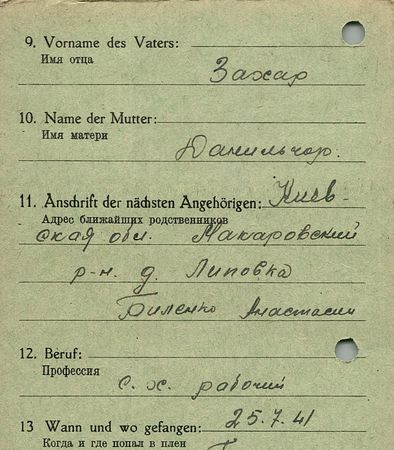 9. Vorname des Vaters:
Имя отца
Захар
10. Name der Mutter:
Имя матери
Данильчор.
11. Anschrift der nächsten Angehörigen: Киев-
Адрес ближайших родственников
ская обл. Макаровский
р-н. д. Липовка
Биленко Анастасии
12. Beruf:
Профессия
с. х. рабочий
13 Wann und wo gefangen: 25.7.41
Когда и где попал в плен